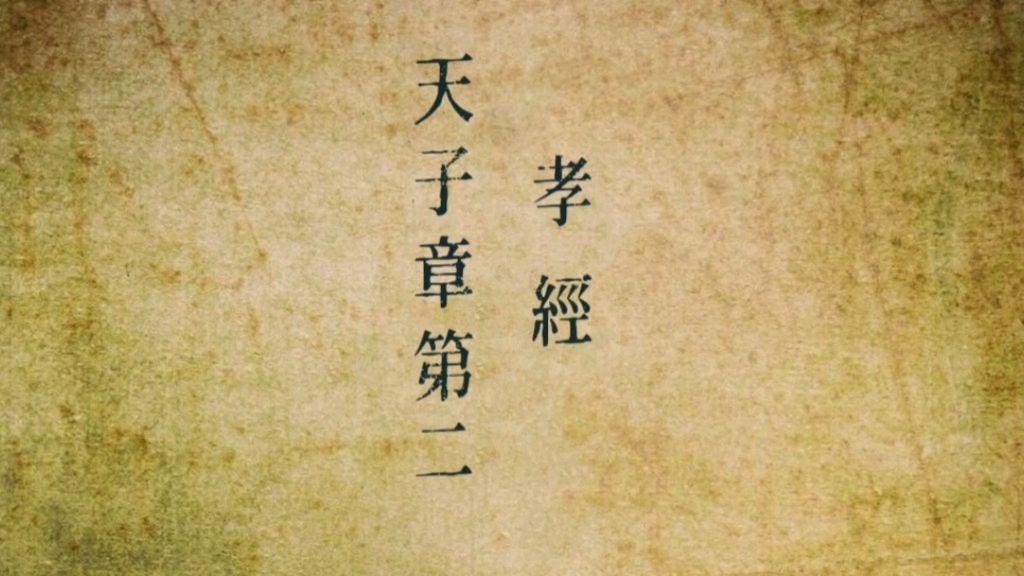 孝經
天子章第二